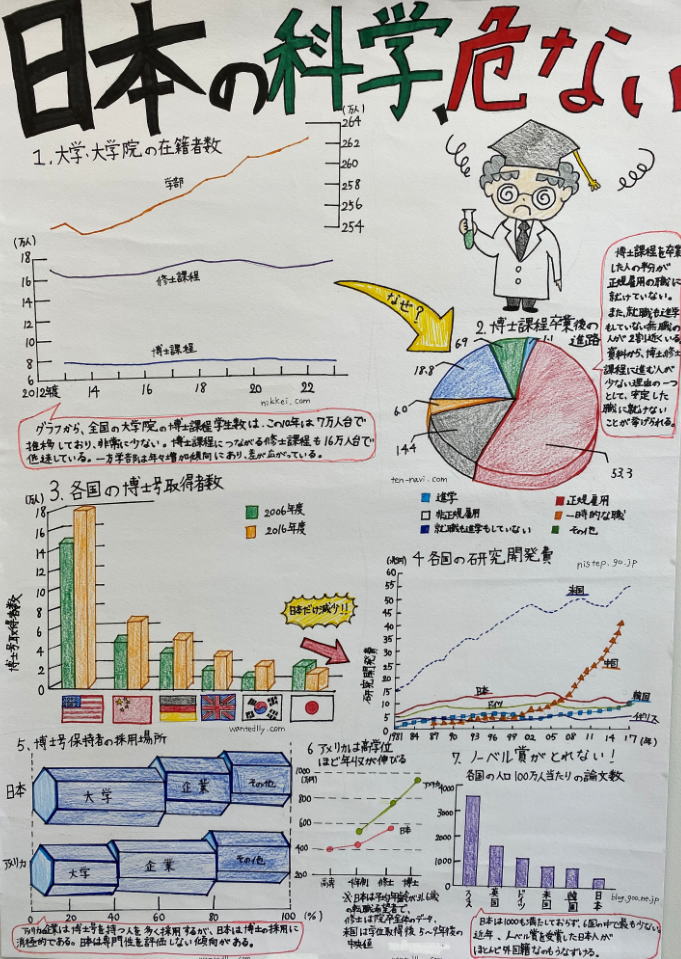 日本の科学、危ない
1. 大学・大学院の在籍者数
(万人)
264
262
260
258
256
254
学部
(万人)
18
16
14
12
10
8
6
修士課程
博士課程
2012年度
14
16
18
20
22
nikkei.com
グラフから、全国の大学院の博士課程学生数は、この10年は7万人台で
推移しており、非常に少ない。博士課程につながる修士課程も16万人台で
低迷している。一方学部は年々増加傾向にあり、差が広がっている。
なぜ?
2. 博士課程卒業後の
進路
6.9
1.1
18.8
6.0
14.4
53.3
ten-navi.com
進学
正規雇用
非正規雇用
一時的な職
就職も進学もしていない
その他
博士課程を卒業
した人の半分が
正規雇用の職に
就けていない。
また、就職も進学
もしていない無職の
人が2割近くいる。
資料から、博士・修士
課程に進む人が
少ない理由の一つ
として、安定した
職に就けない
ことが挙げられる。
3. 各国の博士号取得者数
(万人)
18
16
14
12
10
8
6
4
2
0
博士号取得者数
2006年度
2016年度
日本だけ減少!!
wantedlly.com
4 各国の研究開発費
nistep.go.jp
60
55
50
45
40
35
30
25
20
15
10
5
0
研究開発費
米国
中国
日本
ドイツ
韓国
イギリス
1981
84
87
90
93
96
99
02
05
08
11
14
17
(年)
5. 博士号保持者の採用場所
日本
大学
企業
その他
アメリカ
大学
企業
その他
0
20
40
60
80
100
(%)
アメリカ企業は博士号を持つ人を多く採用するが、日本は博士の採用に
消極的である。日本は専門性を評価しない傾向がある。
6 アメリカは高学位
ほど年収が伸びる
1000
(万円)
800
600
400
200
アメリカ
日本
高専
学部
修士
博士
修士は院卒全体のデータ、
米国は学位取得後5~9年後の
中央値
wantedlly.com
7. ノーベル賞がとれない!
各国の人口100万人当たりの論文数
4000
3000
2000
1000
0
スイス
英国
ドイツ
米国
韓国
日本
blog.goo.ne.jp
日本は1000も満たしておらず、6国の中で最も少ない。
近年、ノーベル賞を受賞した日本人が
ほとんど外国籍なのもうなずける。